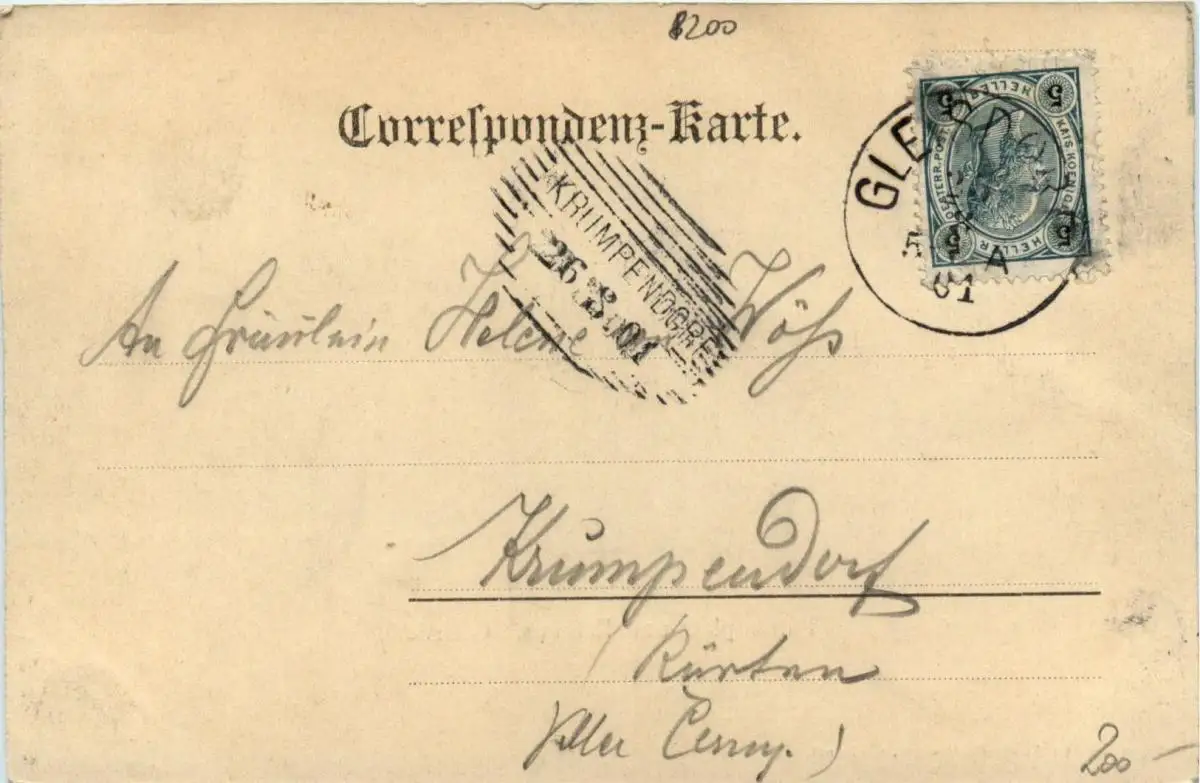 8200
Correspondenz-Karte.
5 HELLER 5
KAIS. KOENIGL. OESTERR. POST
5 HELLER 5
GLE
A
01
KRUMPENDORF
26 8 01
An Fräulein Helene Wöss
Krumpendorf
Kärnten
Villa Černy.)
200